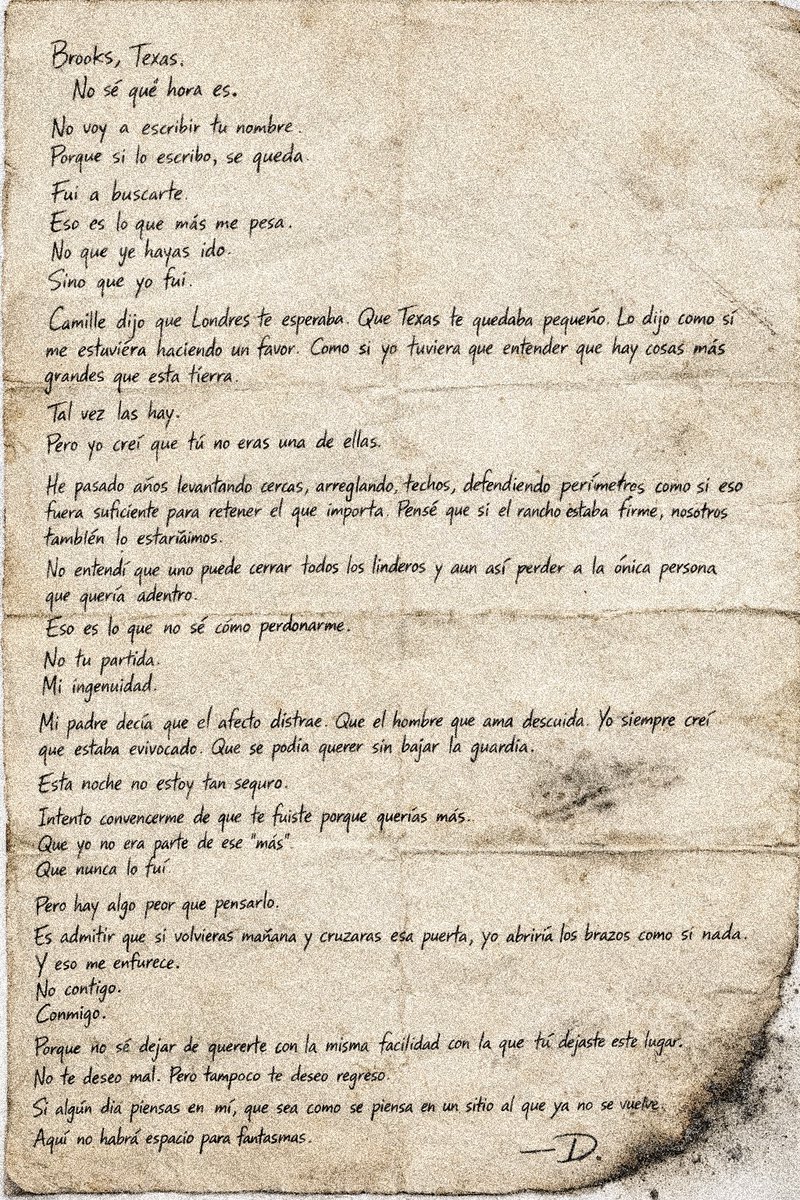 Brooks, Texas.
No sé qué hora es.
No voy a escribir tu nombre.
Porque si lo escribo, se queda.
Fui a buscarte.
Eso es lo que más me pesa.
No que ye hayas ido.
Sino que yo fui.
Camille dijo que Londres te esperaba. Que Texas te quedaba pequeño. Lo dijo como sí
me estuviera haciendo un favor. Como si yo tuviera que entender que hay cosas más
grandes que esta tierra.
Tal vez las hay.
Pero yo creí que tú no eras una de ellas.
He pasado años levantando cercas, arreglando, techos, defendiendo perímetros como si eso
fuera suficiente para retener el que importa. Pensé que si el rancho estaba firme, nosotros
también lo estaríaimos.
No entendí que uno puede cerrar todos los linderos y aun así perder a la ónica persona
que quería adentro.
Eso es lo que no sé cómo perdonarme.
No tu partida.
Mi ingenuidad.
Mi padre decía que el afecto distrae. Que el hombre que ama descuida. Yo siempre creí
que estaba evivocado. Que se podía querer sin bajar la guardia.
Esta noche no estoy tan seguro.
Intento convencerme de que te fuiste porque querías más.
Que yo no era parte de ese "más"
Que nunca lo fuí.
Pero hay algo peor que pensarlo.
Es admitir que si volvieras mañana y cruzaras esa puerta, yo abriría los brazos como si nada.
Y eso me enfurece.
No contigo.
Conmigo.
Porque no sé dejar de quererte con la misma facilidad con la que tú dejaste este lugar.
No te deseo mal. Pero tampoco te deseo regreso.
Si algún día piensas en mí, que sea como se piensa en un sitio al que ya no se vuelve.
Aquí no habrá espacio para fantasmas.
—D.